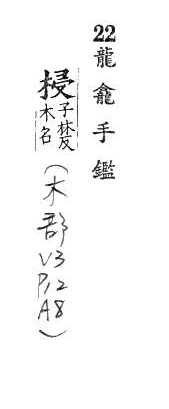 22龍龕手鑑
梫子林反木名(木部V3P12A8)